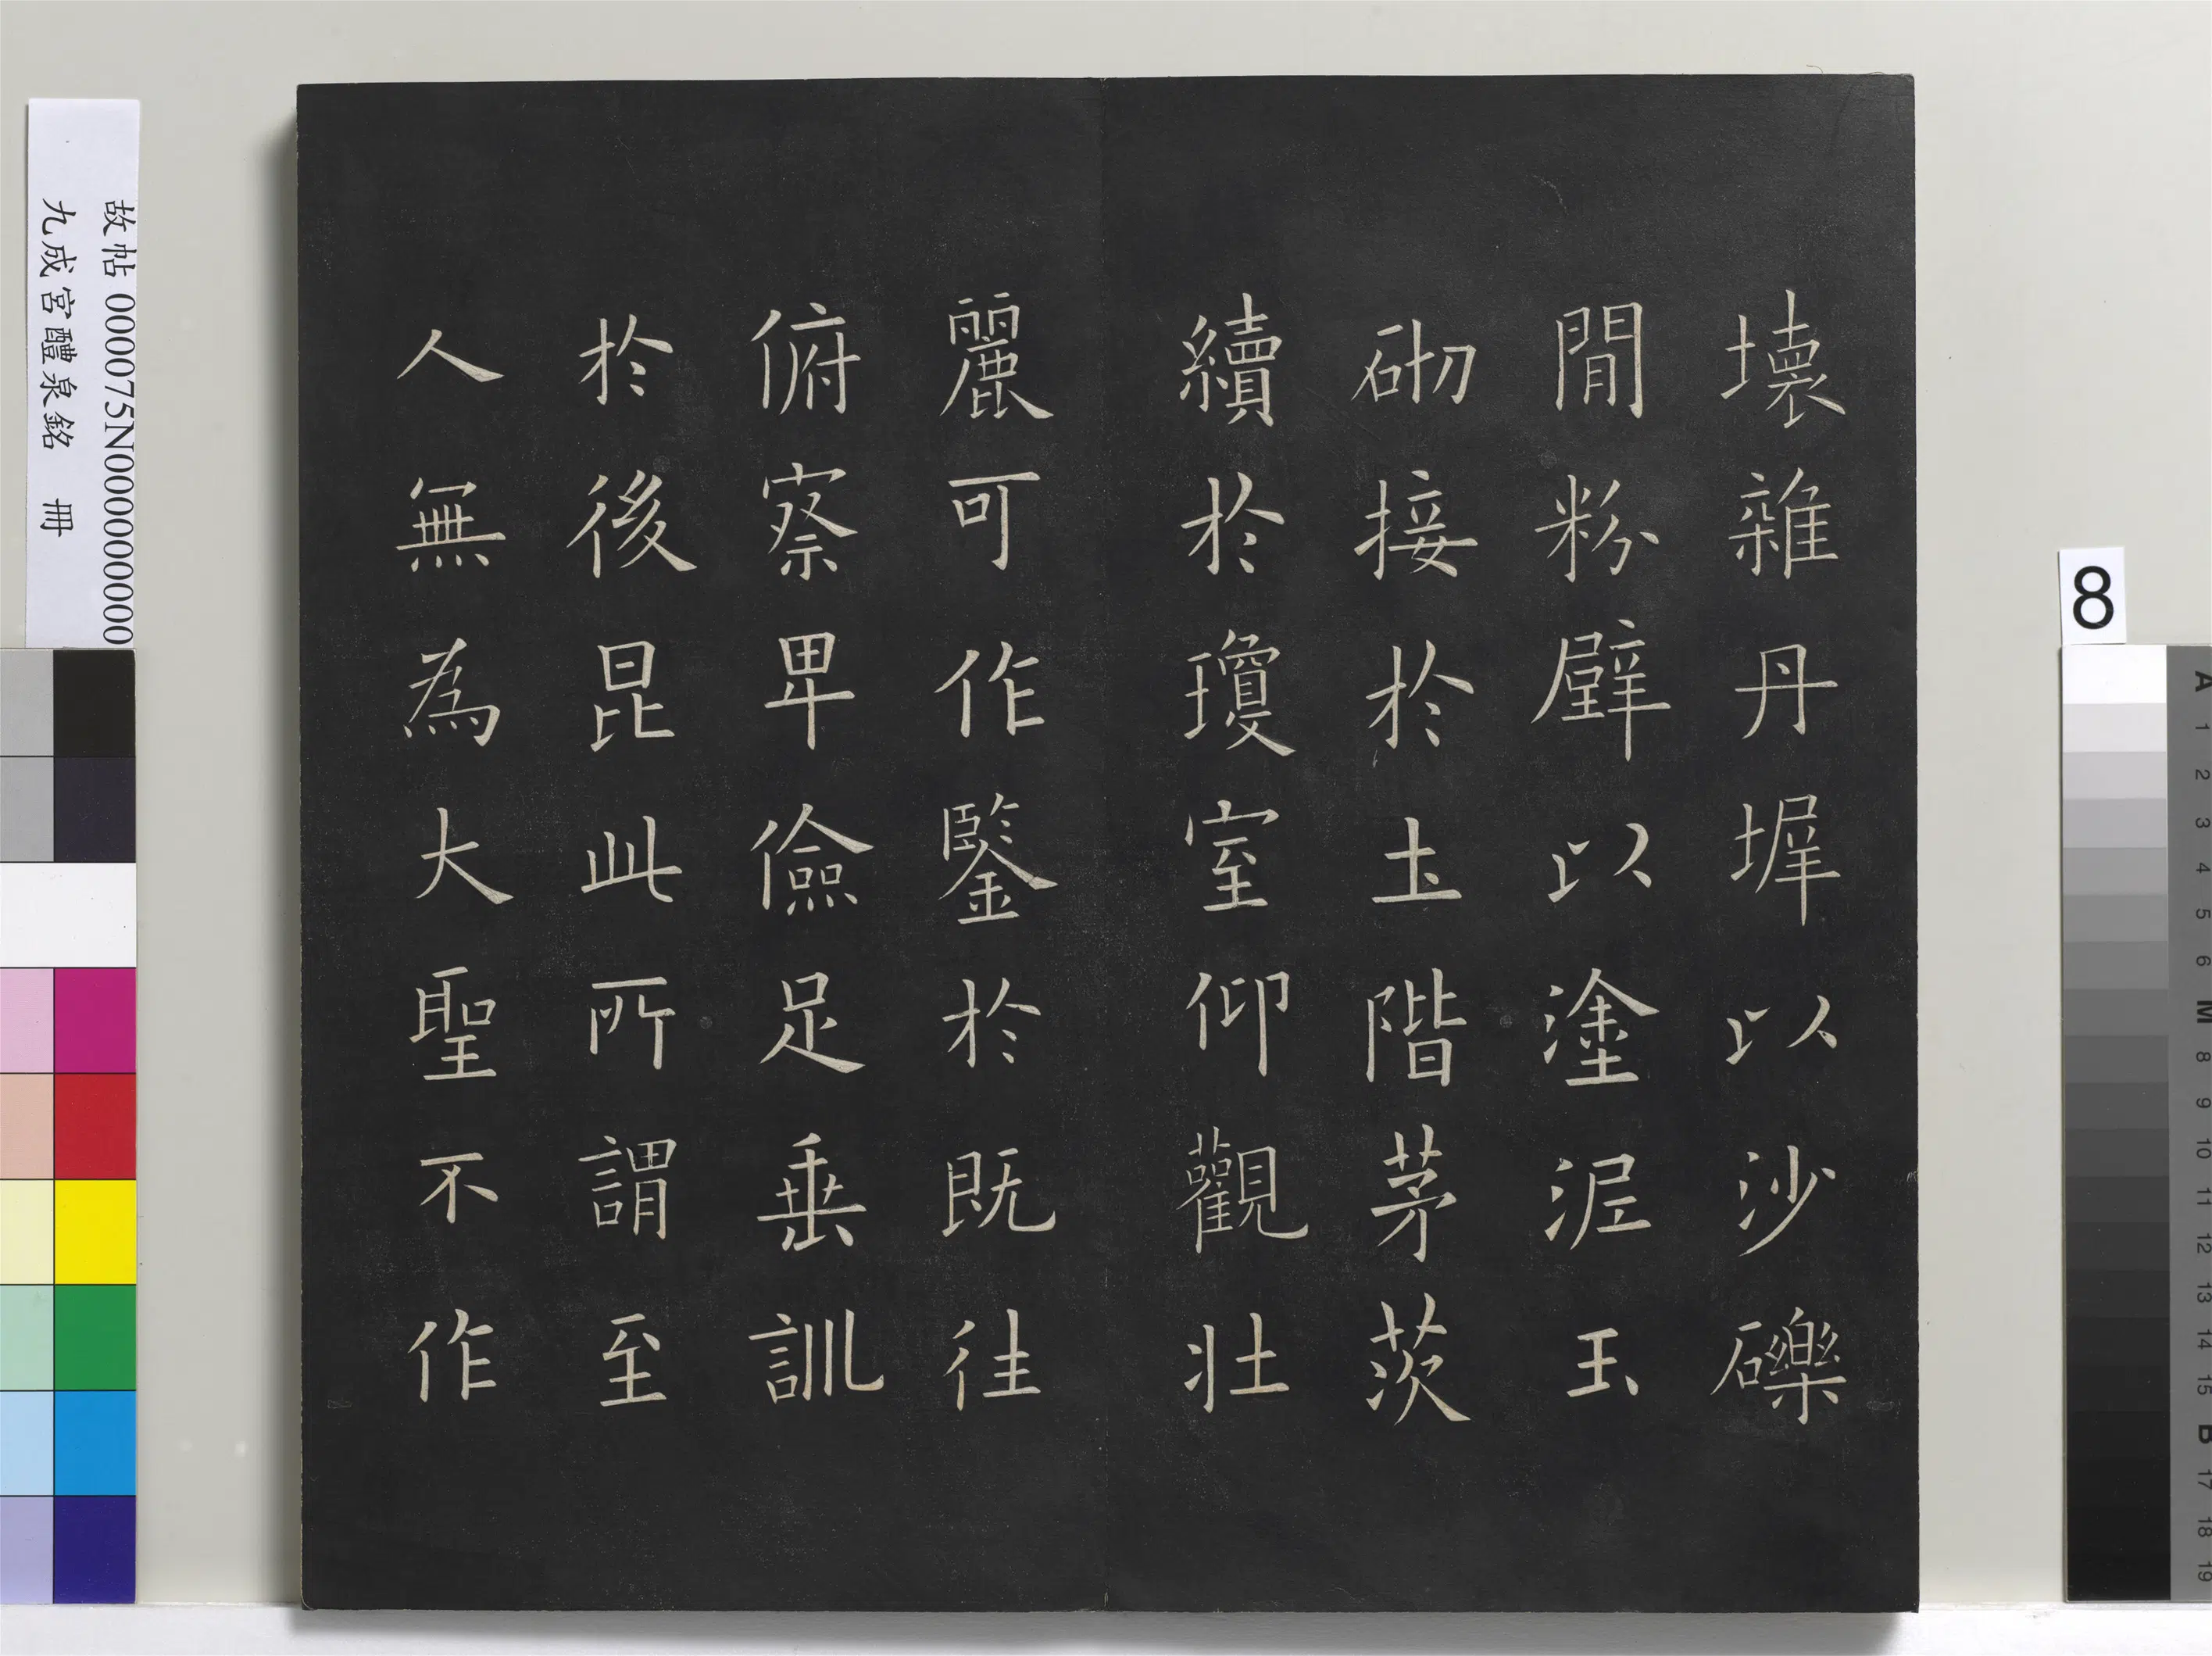 壞雜丹墀以沙礫
間粉壁以塗泥玉
砌接於土階茅茨
續於瓊室仰觀壯
麗可作鑒於既往
俯察卑儉足垂訓
於後昆此所謂至
人無為大聖不作
故帖 000075N000000000
九成宮醴泉銘 冊
8
A
1
2
3
4
5
6
M
8
9
10
11
12
13
14
15
B
17
18
19